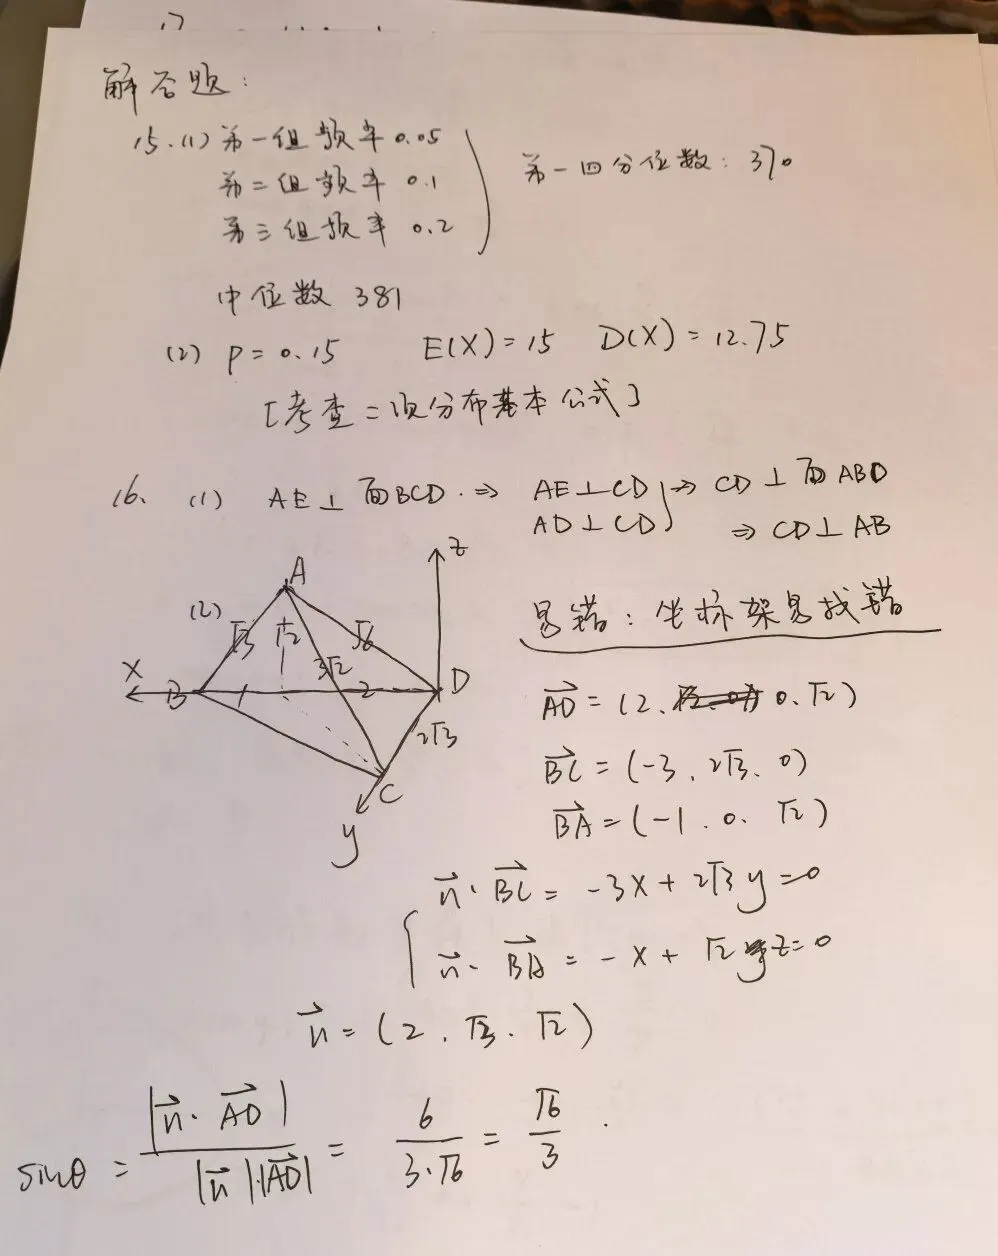 解答题:
15.(1) 第一组频率 0.05
第二组频率 0.1
第三组频率 0.2
第一四分位数: 370
中位数 381
(2) P = 0.15 E(X) = 15 D(X) = 12.75
[考查二项分布基本公式]
16. (1) AE⊥面BCD ⇒ AE⊥CD ⇒ CD⊥面ABD
AD⊥CD ⇒ CD⊥AB
(2)
A
z
√3 √2 √6
3√2
x B 1 2 D
2√3
C
y
易错: 坐标架易找错
AD = (2, 0, √2)
BC = (-3, 2√3, 0)
BA = (-1, 0, √2)
n · BC = -3x + 2√3y = 0
n · BA = -x + √2 z = 0
n = (2, √3, √2)
sinθ = |n · AD| / |n|·|AD| = 6 / 3·√6 = √6 / 3 .